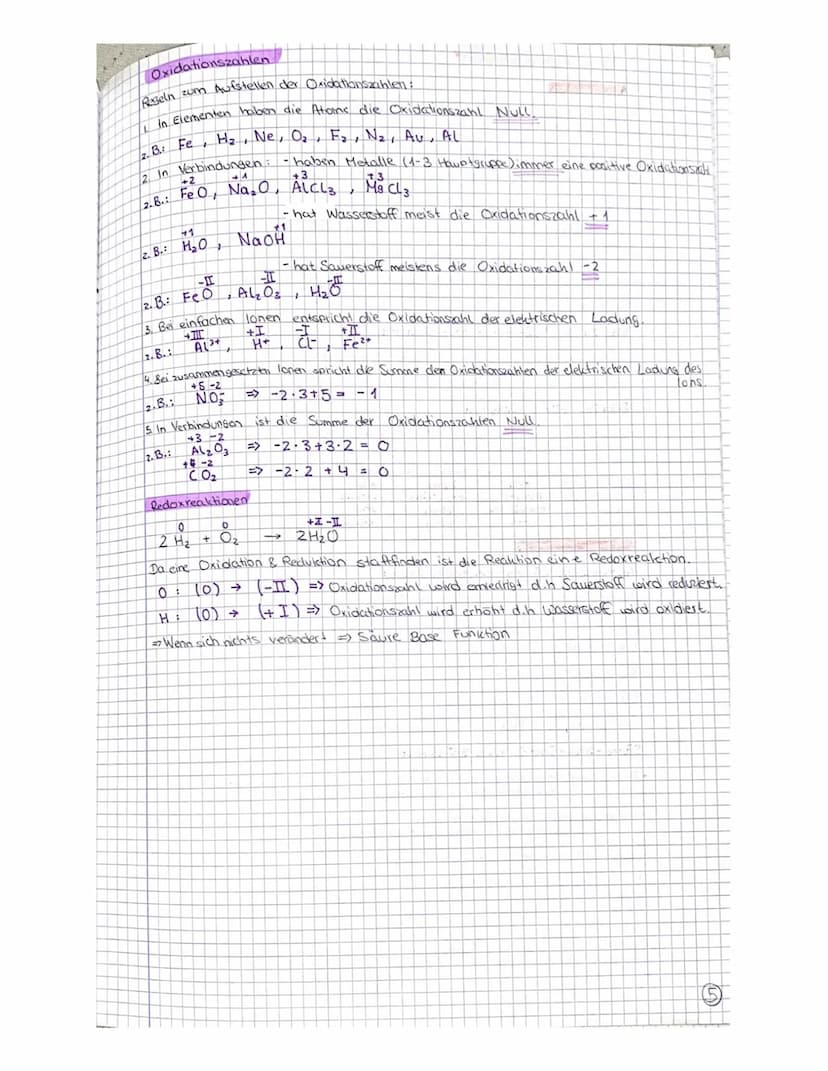 Oxidationszahlen
Regeln zum Aufstellen der Oxidationszahlen:
1. In Elementen haben die Atome die Oxidationszahl Null.
z.B.: Fe, H₂, Ne, O₂, F₂, N₂, Au, Al
2. In Verbindungen: - haben Metalle (1-3 Hauptgruppe) immer eine positive Oxidationszahl
+2 +1 +3 +3
z.B.: FeO, Na₂O, AlCl₃, MgCl₃
- hat Wasserstoff meist die Oxidationszahl +1
+1 +1
z.B.: H₂O, NaOH
- hat Sauerstoff meistens die Oxidationszahl -2
-II -II -II
z.B.: FeO, Al₂O₃, H₂O
3. Bei einfachen Ionen entspricht die Oxidationszahl der elektrischen Ladung.
+III +I -I +II
z.B.: Al³⁺, H⁺, Cl⁻, Fe²⁺
4. Bei zusammengesetzten Ionen spricht die Summe den Oxidationszahlen der elektrischen Ladung des
Ions.
+5 -2
z.B.: NO₃⁻ => -2·3+5 = -1
5. In Verbindungen ist die Summe der Oxidationszahlen Null.
+3 -2
z.B.: Al₂O₃ => -2·3+3·2 = 0
+4 -2
CO₂ => -2·2 + 4 = 0
Redoxreaktionen
0 0 +I -II
2 H₂ + O₂ → 2H₂O
Da eine Oxidation & Reduktion stattfinden ist die Reaktion eine Redoxreaktion.
O: (0) → (-II) => Oxidationszahl wird erniedrigt d.h Sauerstoff wird reduziert.
H: (0) → (+I) => Oxidationszahl wird erhöht d.h Wasserstoff wird oxidiert.
=> Wenn sich nichts verändert => Säure Base Funktion
5